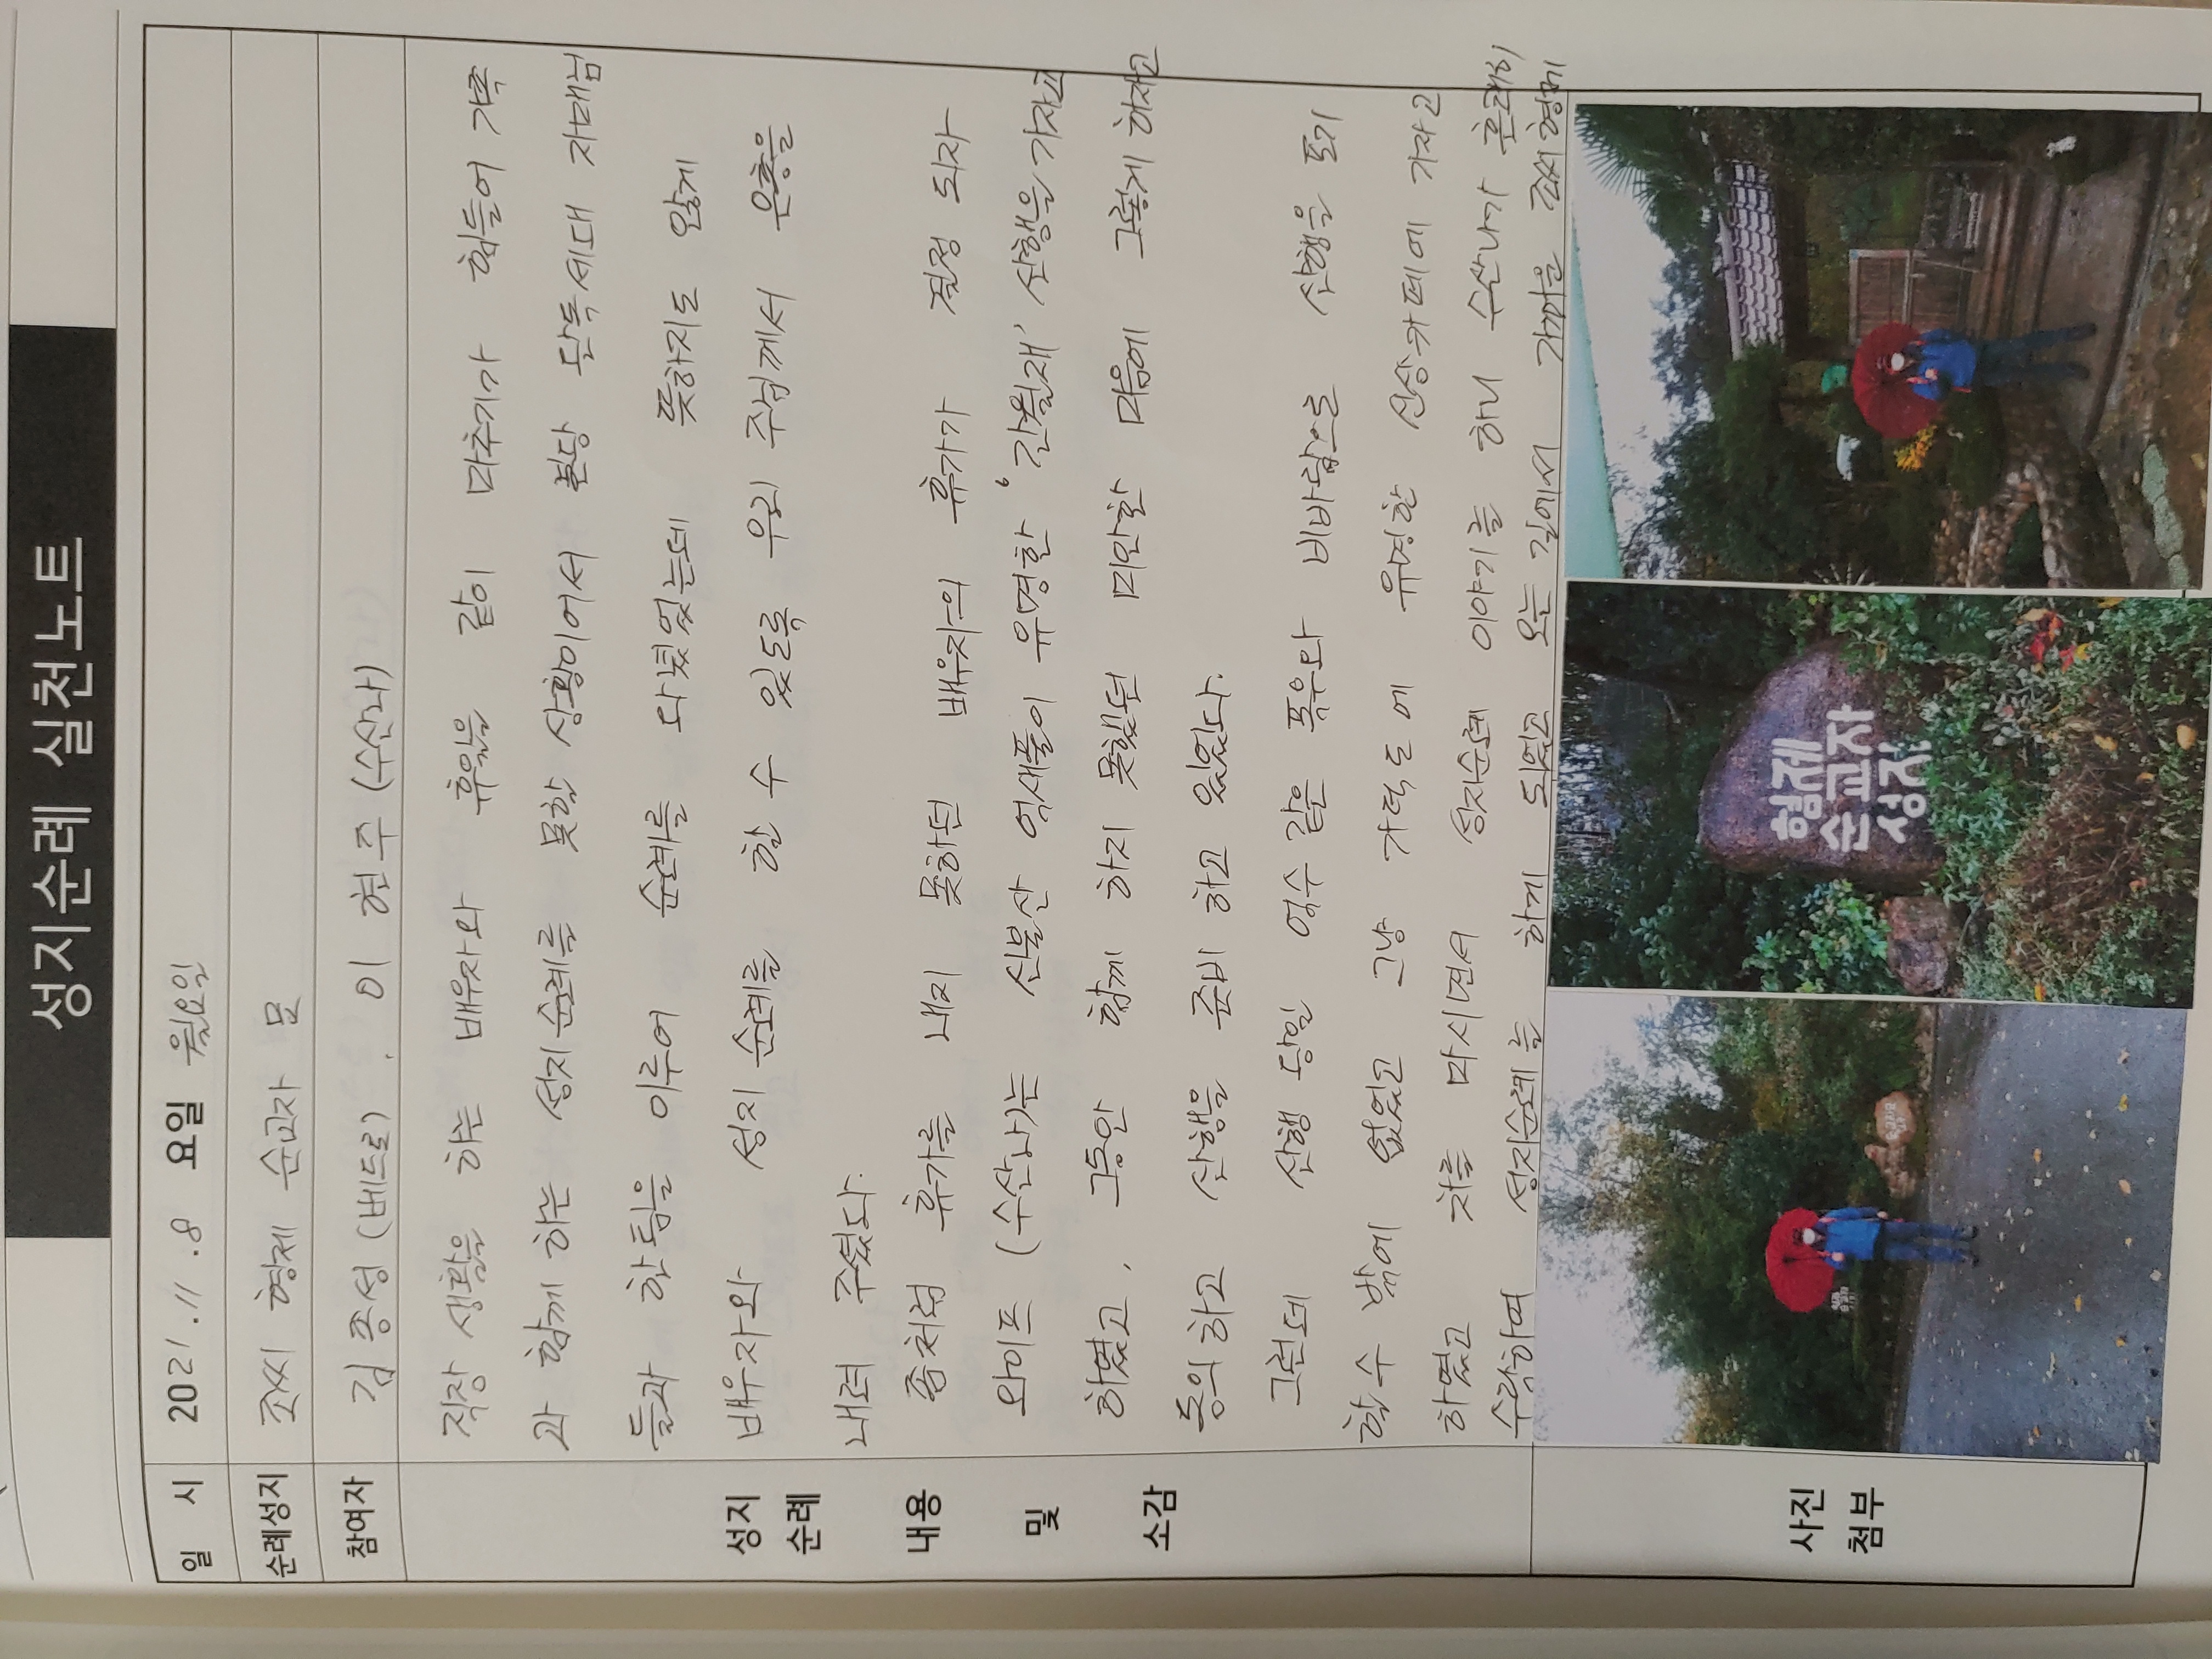 성지순례 실천노트
일 시 2021.11.8 요일 월요일
순례성지 조씨 형제 순교자 묘
참여자 김종성 (베드로). 이현주 (수산나)
직장 생활을 하는 배우자와 휴일을 같이 마추기가 힘들어 가족
과 함께 하는 성지순례를 못한 상황이어서 본당 단독세대 자매님
들과 한팀을 이루어 순례를 다녔었는데 뜻하지도 않게
배우자와 성지 순례를 할 수 있도록 우리 주님께서 은총을
내려 주셨다.
좀처럼 휴가를 내지 못하던 배우자의 휴가가 결정 되자
와이프 (수산나)는 신불산 억새풀이 유명한 '간월재' 산행을 가자고
하였고, 그동안 함께 하지 못했던 미안한 마음에 그렇게 하자고
동의하고 산행을 준비 하고 있었다.
그런데 산행 당일 억수 같은 폭우와 비바람으로 산행을 포기
할 수 밖에 없었고 그냥 가덕도에 유명한 산상카페에 가자고
하였고 차를 마시면서 성지순례 이야기를 하니 수산나가 흔쾌히
수락하여 성지순례 는 하게 되었고 오는 길에서 가까운 조씨형제
성지
순례
내용
및
소감
사진
첨부
형제
순교자
성지